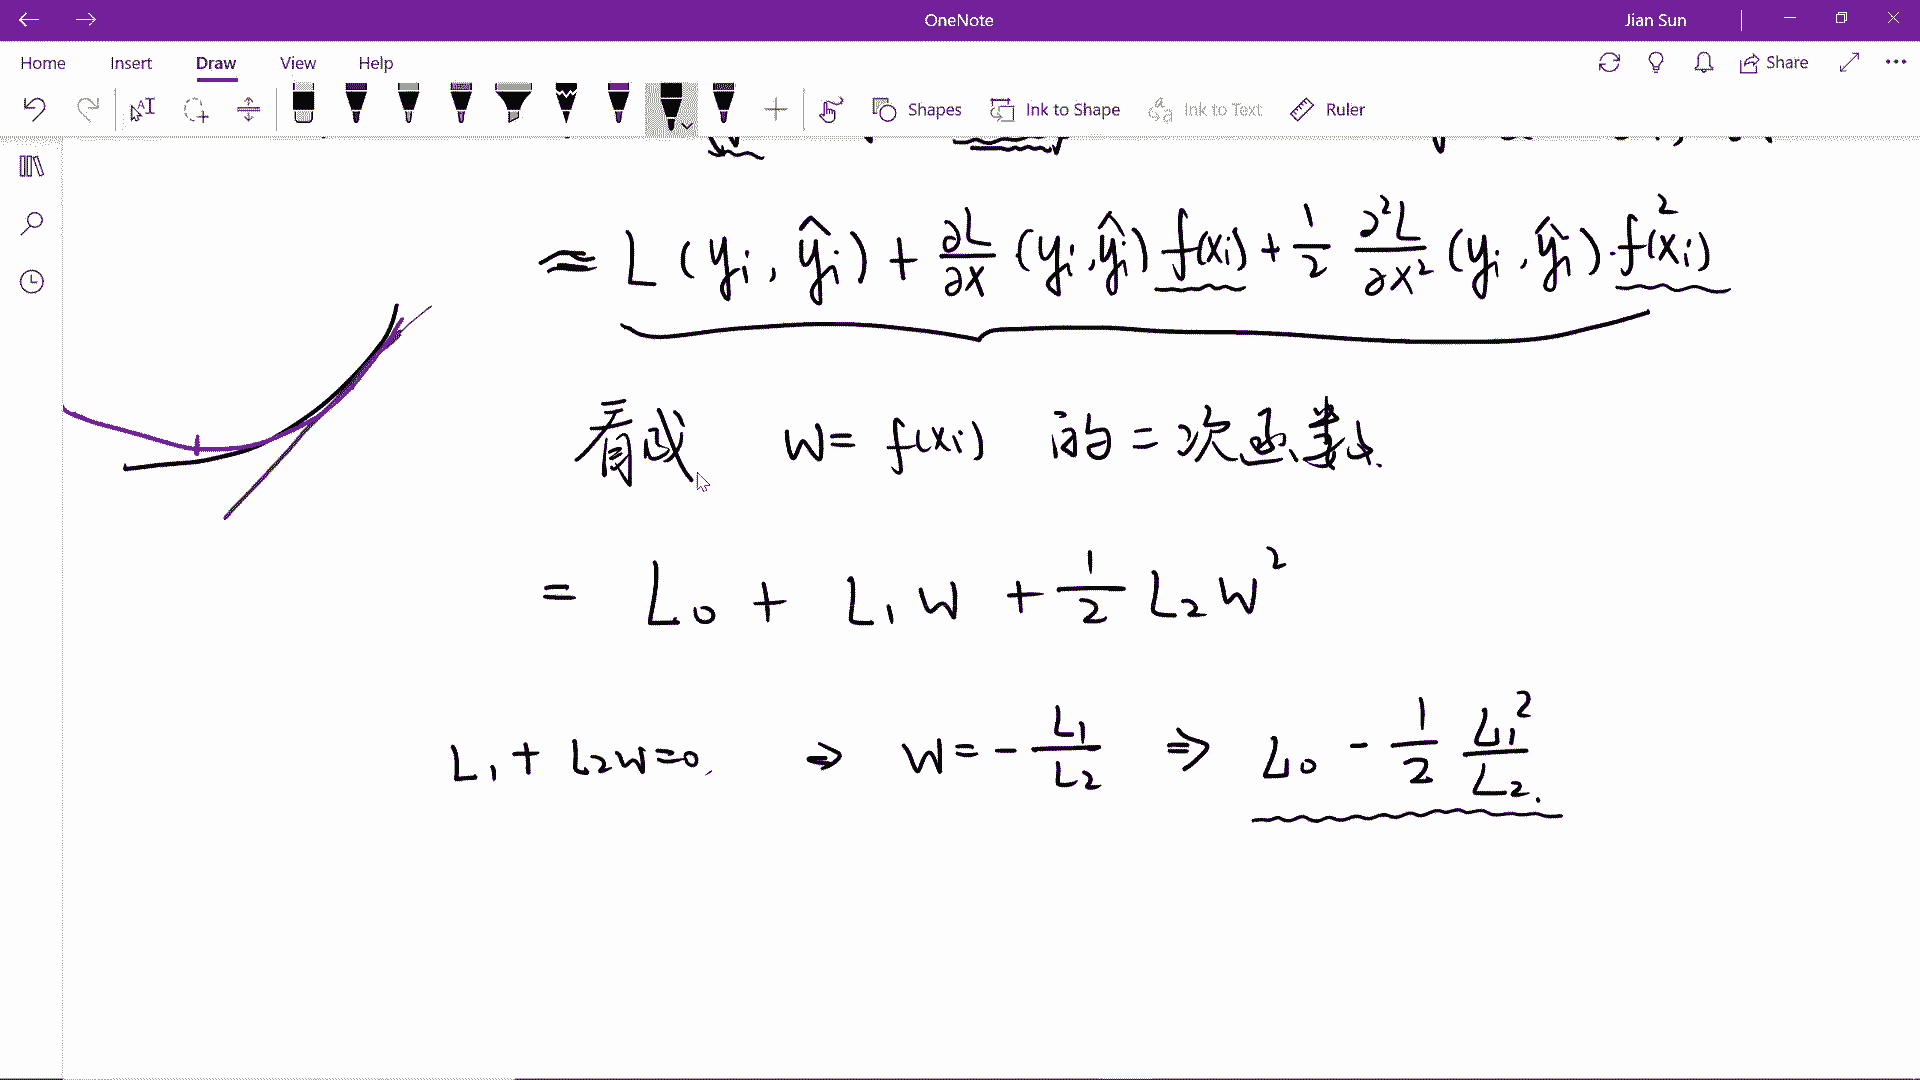 OneNote
Jian Sun
Home Insert Draw View Help
Share
Shapes Ink to Shape Ink to Text Ruler
≈ L(yi, ŷi) + ∂L/∂x (yi, ŷi) f(xi) + 1/2 ∂²L/∂x² (yi, ŷi)·f²(xi)
看成 W= f(xi) 的二次函数.
= L₀ + L₁W + 1/2 L₂W²
L₁ + L₂W=0. ⇒ W=-L₁/L₂ ⇒ L₀ - 1/2 L₁²/L₂.